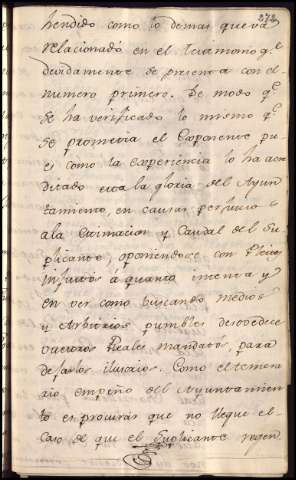 272
hendido como lo demas que vá
relacionado en el Testimonio q.e
devidamente se presenta con el
numero primero. De modo q.e
se ha verificado lo mismo q.e
se prometia el Exponente pu-
es como la experiencia lo ha acre
ditado la gloria del Ayun
tamiento, en causar perjuicio
a la Estimacion y Caudal del Su-
plicante, oponiendose con
injustos a quanto intenta y
en ver como buscando medios
y Arbitrios desovedece
vuestros Reales mandatos, para
dejarlos ilusorios. Como el teme
rario empeño del Ayuntamien
to es procurar que no llegue el
Caso de que el Suplicante regen